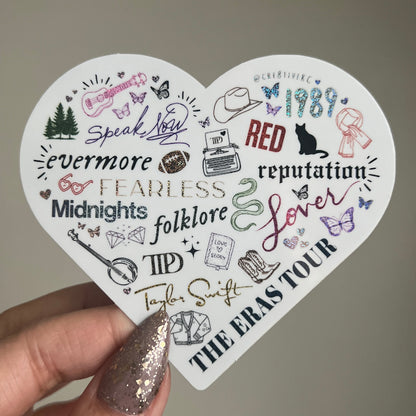 @CRE8TIVEKC
1989
Speak Now
TTPD
RED
evermore
reputation
FEARLESS
Midnights
folklore
Lover
LOVE
STORY
TTPD
Taylor Swift
THE ERAS TOUR